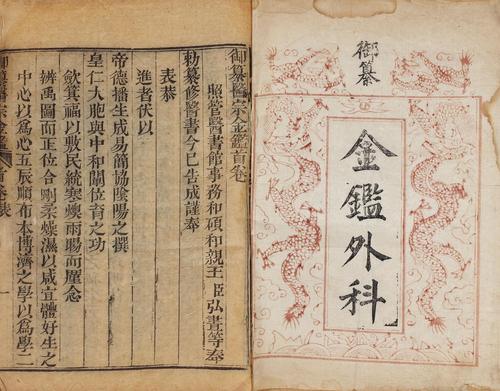 御纂
金鑑外科
御纂醫宗金鑑首卷
照管醫書館事務和碩和親王臣弘晝等奉
勅纂修醫書今已告成謹奉
表恭
進者伏以
帝德播生成易簡協陰陽之撰
皇仁大胞與中和闡位育之功
歛箕福以敷民統寒燠雨暘而厪念
辨禹圖而正位合剛柔燥濕以咸宜體好生之
中心以為心五辰順布本博濟之學以為學二
御纂醫宗金鑑